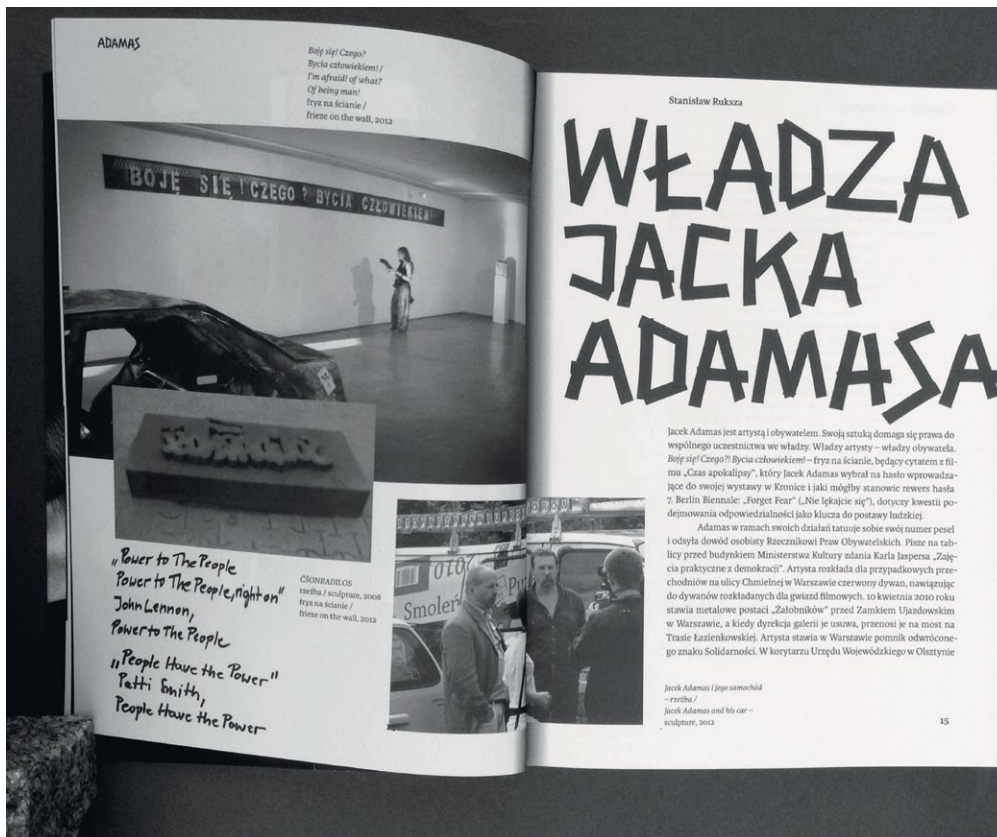 ADAMAS
Boję się! Czego?
Bycia człowiekiem! /
I'm afraid! of what?
Of being man!
fryz na ścianie /
frieze on the wall, 2012
BOJĘ SIĘ ! CZEGO ? BYCIA CZŁOWIEKIEM!
„Power to The People
Power to The People, right on"
John Lennon,
Power to The People
„People Have the Power"
Patti Smith,
People Have the Power
ĆŚONRADILOS
rzeźba / sculpture, 2008
fryz na ścianie /
frieze on the wall, 2012
Smoleń
Stanisław Ruksza
WŁADZA
JACKA
ADAMASA
Jacek Adamas jest artystą i obywatelem. Swoją sztuką domaga się prawa do
wspólnego uczestnictwa we władzy. Władzy artysty – władzy obywatela.
Boję się! Czego?! Bycia człowiekiem! – fryz na ścianie, będący cytatem z fil-
mu „Czas apokalipsy”, który Jacek Adamas wybrał na hasło wprowadza-
jące do swojej wystawy w Kronice i jaki mógłby stanowić rewers hasła
7. Berlin Biennale: „Forget Fear” („Nie lękajcie się”), dotyczy kwestii po-
dejmowania odpowiedzialności jako klucza do postawy ludzkiej.
Adamas w ramach swoich działań tatuuje sobie swój numer pesel
i odsyła dowód osobisty Rzecznikowi Praw Obywatelskich. Pisze na tab-
licy przed budynkiem Ministerstwa Kultury zdania Karla Jaspersa „Zaję-
cia praktyczne z demokracji”. Artysta rozkłada dla przypadkowych prze-
chodniów na ulicy Chmielnej w Warszawie czerwony dywan, nawiązując
do dywanów rozkładanych dla gwiazd filmowych. 10 kwietnia 2010 roku
stawia metalowe postaci „Żałobników” przed Zamkiem Ujazdowskim
w Warszawie, a kiedy dyrekcja galerii je usuwa, przenosi je na most na
Trasie Łazienkowskiej. Artysta stawia w Warszawie pomnik odwrócone-
go znaku Solidarności. W korytarzu Urzędu Wojewódzkiego w Olsztynie
Jacek Adamas i jego samochód
– rzeźba /
Jacek Adamas and his car –
sculpture, 2012
15